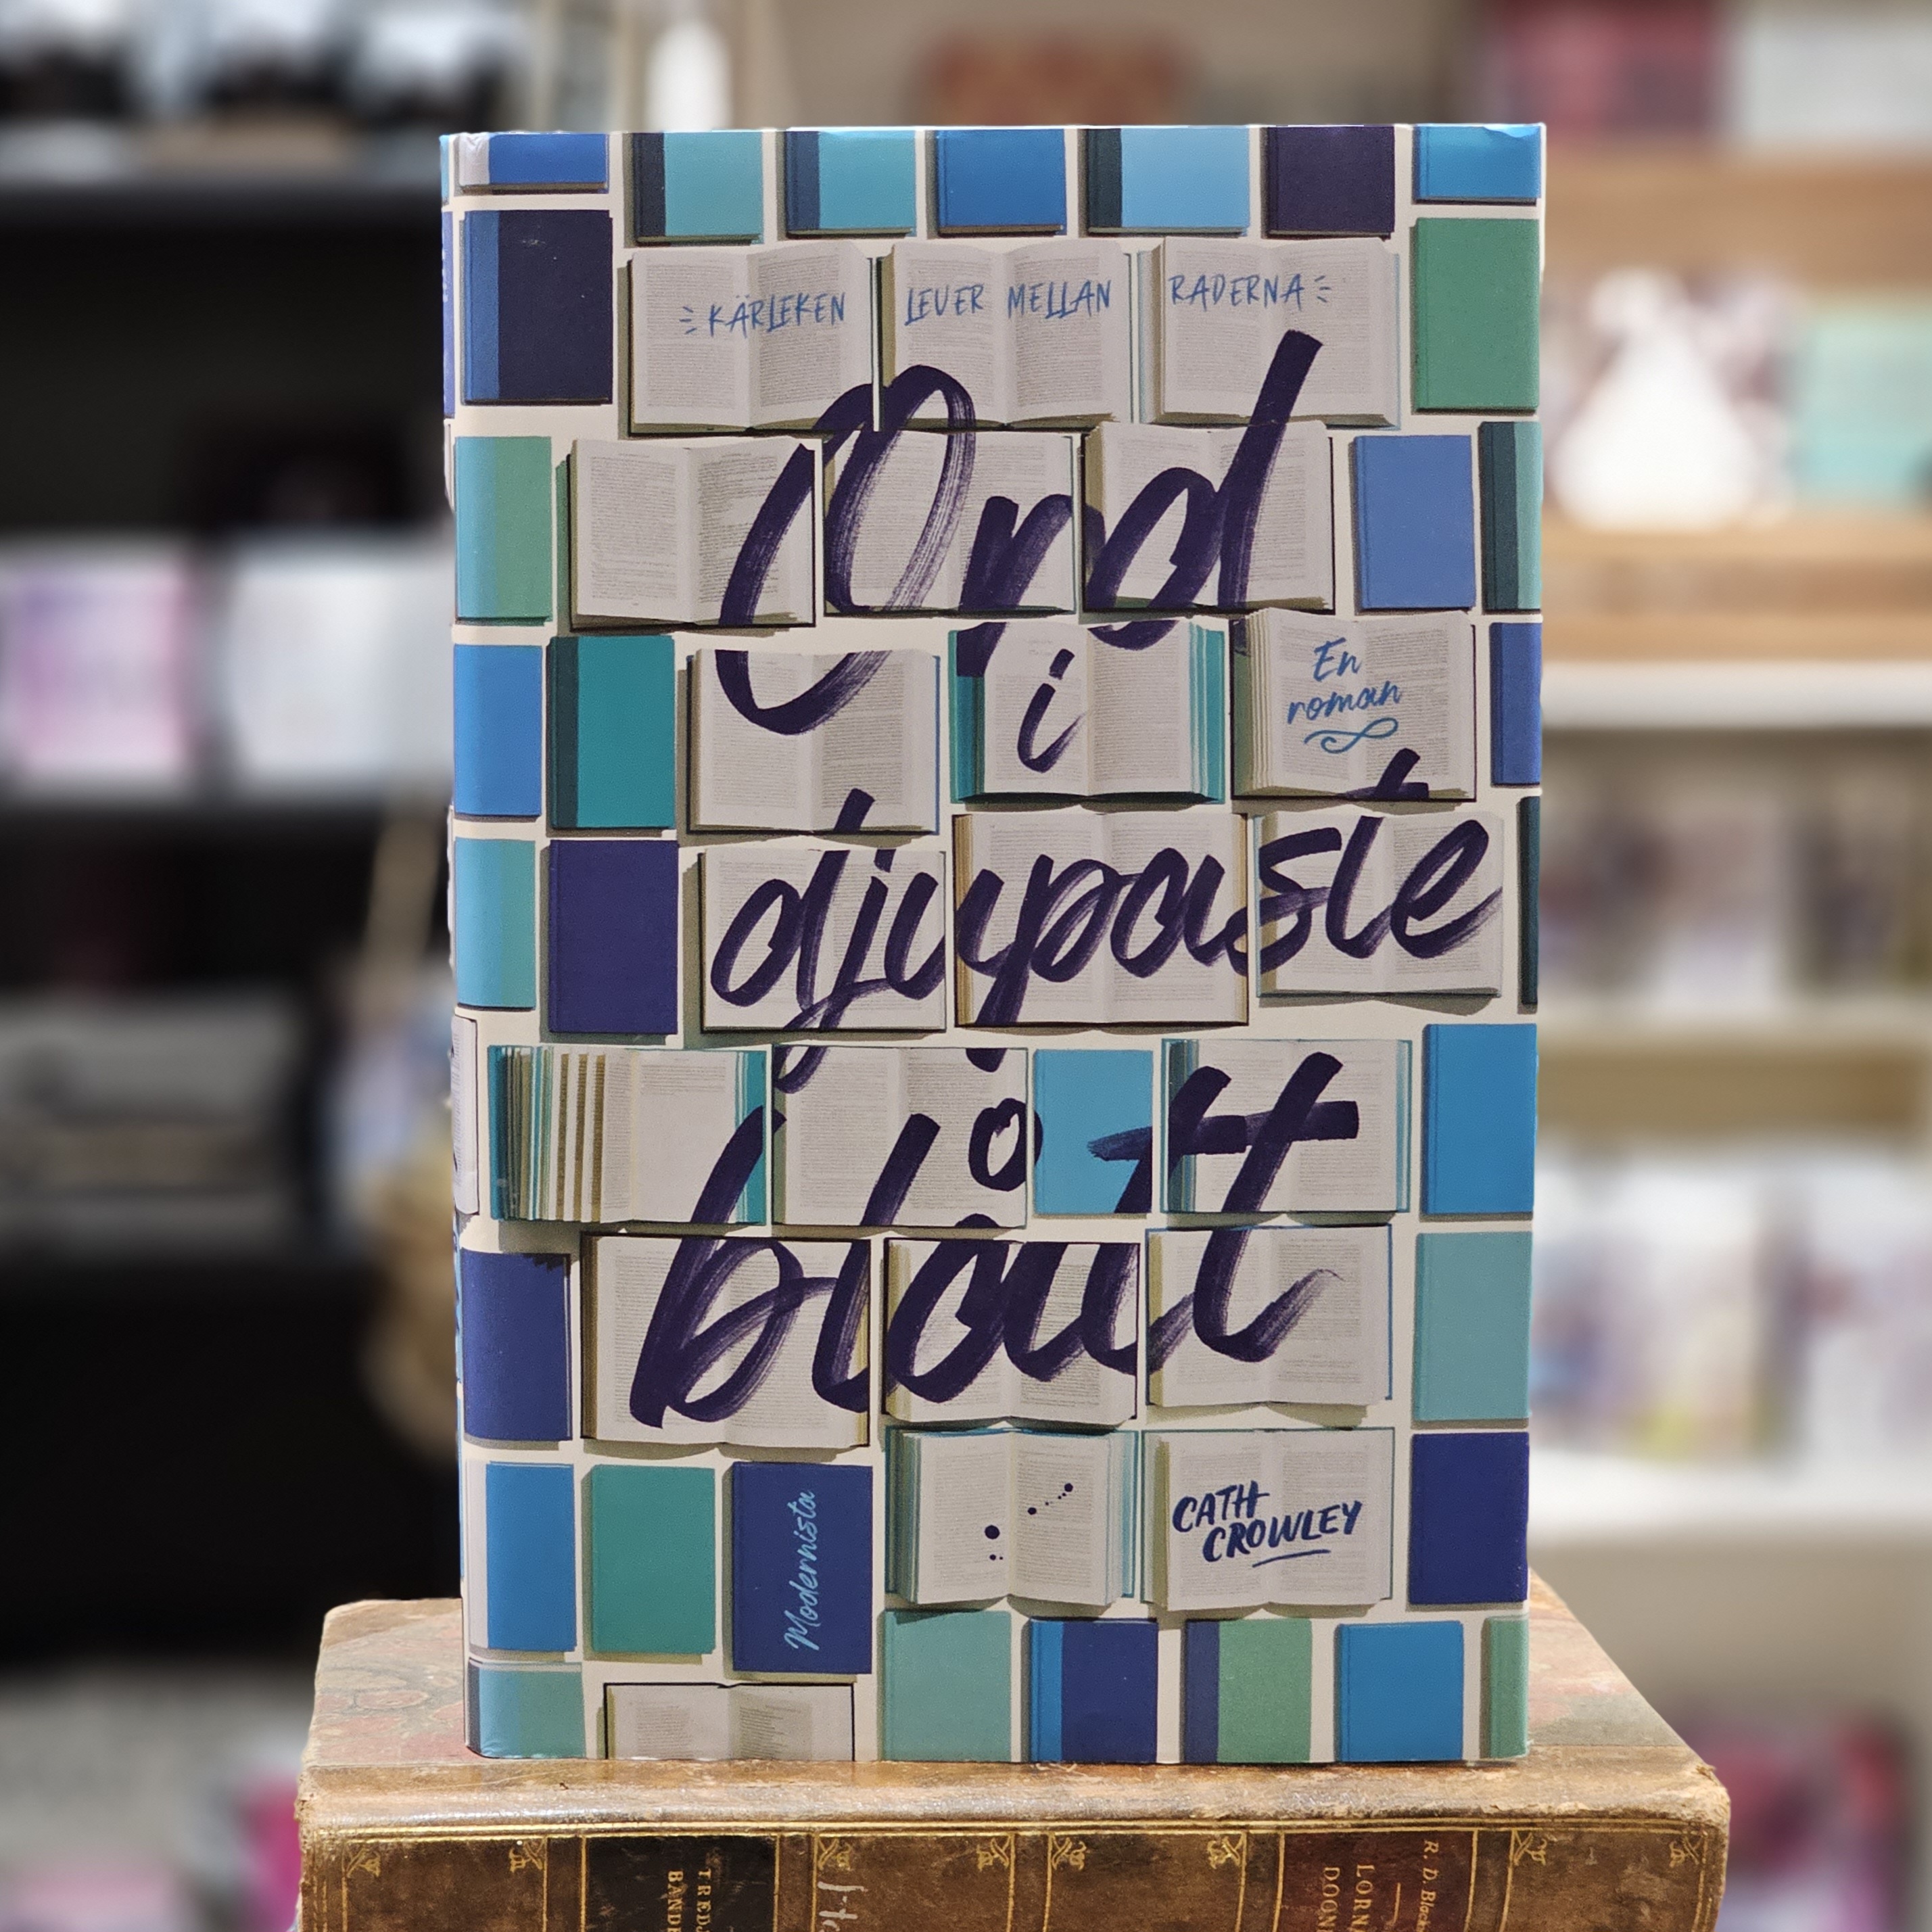 KÄRLEKEN LEVER MELLAN RADERNA
Ord
i
En
roman
djupaste
blått
Modernista
CATH
CROWLEY
TREDJE
BANDET
R. D. Black
LORNA
DOONE